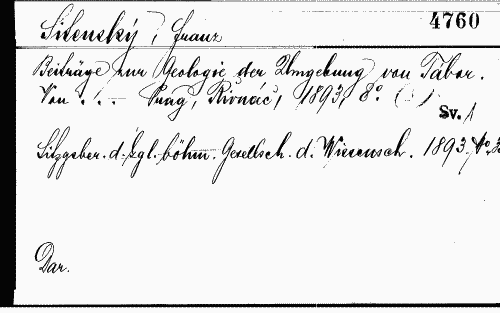 4760
Sitenský, Franz
Beiträge zur Geologie der Umgebung von Tábor.
Von . . – Prag, Řivnáč, 1893. 8°. ( )
Sv. 1
Sitzgsber. d. kgl. böhm. Gesellsch. d. Wissensch. 1893. No.
Dar.